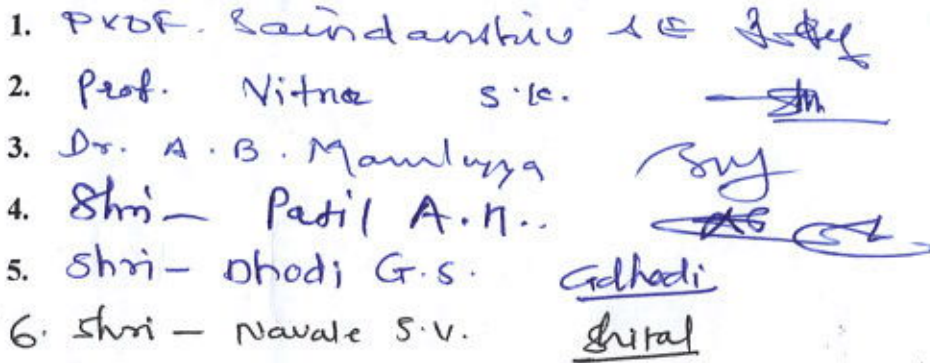 1. Prof. Saindanshiv S E
2. Prof. Nitnaz S.K.
3. Dr. A. B. Mamluyya
4. Shri- Patil A.N..
5. Shri- Dhodi G.S. Gdhodi
6. Shri- Navale S.V. Shital